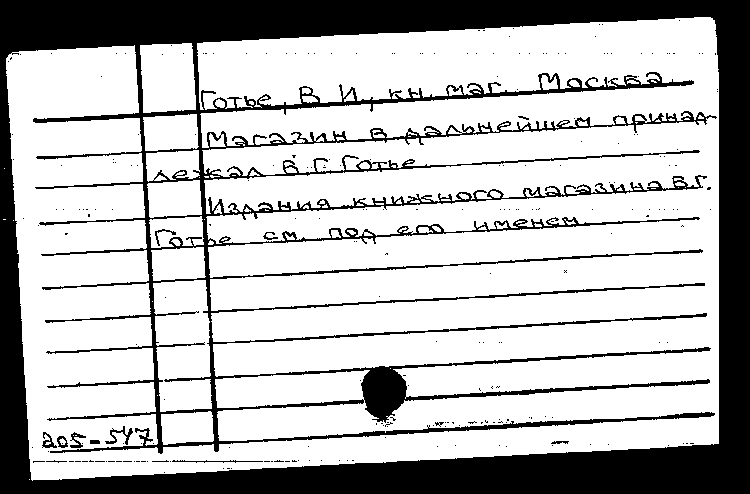 Готье, В И, кн. маг. Москва.
Магазин в дальнейшем принад-
лежал В.Г. Готье.
Издания книжного магазина В.Г.
Готье см. под его именем
205-547